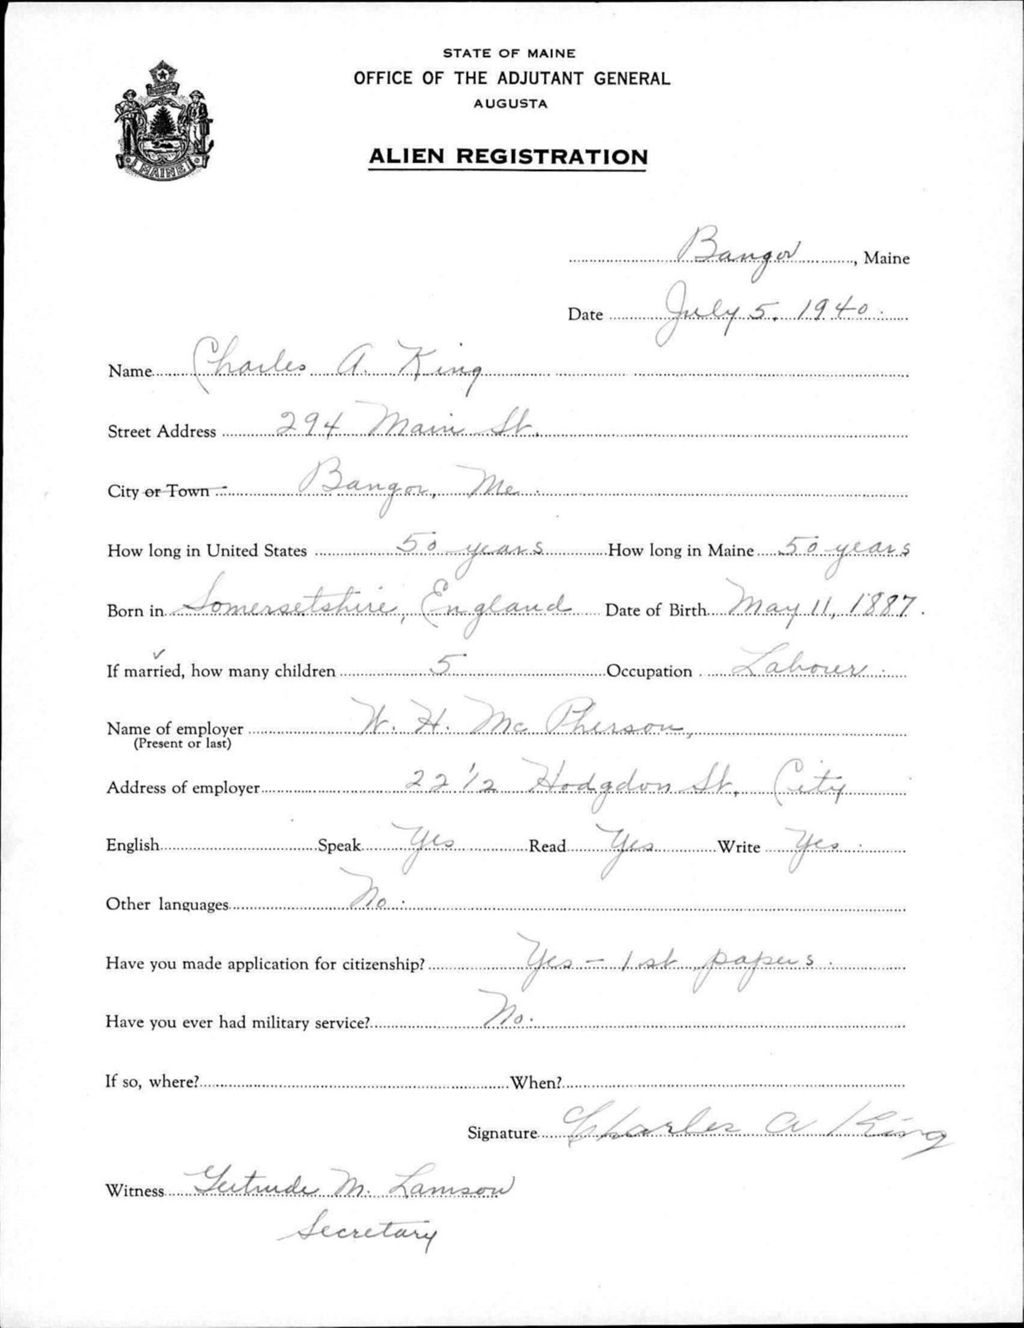 STATE OF MAINE
OFFICE OF THE ADJUTANT GENERAL
AUGUSTA
ALIEN REGISTRATION
MAINE
Bangor, Maine
Date July 5, 1940.
Name Charles A. King
Street Address 294 Main St.
City or Town Bangor, Me.
How long in United States 50 years How long in Maine 50 years
Born in Somersetshire, England Date of Birth May 11, 1887.
If married, how many children 5 Occupation Labourer.
Name of employer W. H. McPherson,
(Present or last)
Address of employer 22 1/2 Hodgdon St. City
English Speak Yes Read Yes Write Yes.
Other languages No.
Have you made application for citizenship? Yes - 1st papers.
Have you ever had military service? No.
If so, where? When?
Signature Charles A King
Witness Gertrude M. Lamson
Secretary